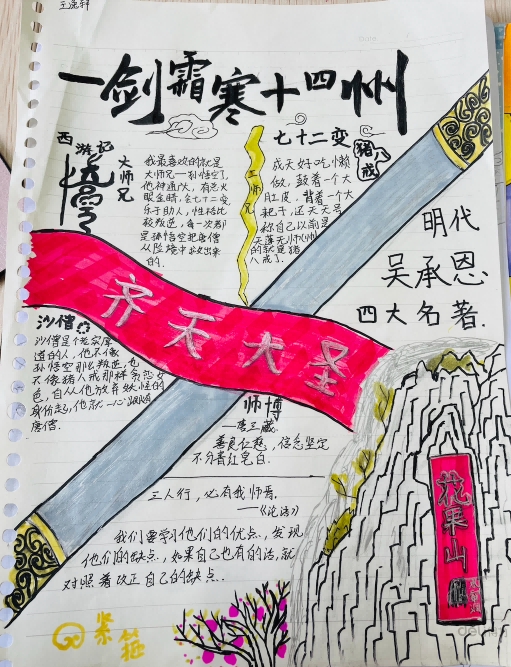 一剑霜寒十四州
西游记
悟空
大师兄
我最喜欢的就是
大师兄一孙悟空了,
他神通广大,有着火
眼金睛,会七十二变
乐于助人,性格比
较叛逆,每一次都
是孙悟空把唐僧
从险境中救出来
的.
二师兄
七十二变
猪八戒
成天好吃懒
做,鼓着一个大
肚皮,背着一个大
耙子,还天天号
称自己以前是
天蓬元帅
的就是猪
八戒了.
明代
吴承恩
四大名著.
齐天大圣
沙僧
沙僧是个忠实厚
道的人,他不像
孙悟空那么叛逆,也
不像猪八戒那样贪恋女
色,自从他放弃妖怪的
身份起,他就一心跟随
唐僧.
师博
—唐三藏
善良仁慈,信念坚定
不分青红皂白.
三人行,必有我师焉.
——《论语》
我们要学习他们的优点,发现
他们的缺点,如果自己也有的话,就
对照着改正自己的缺点.
花果山
紧箍